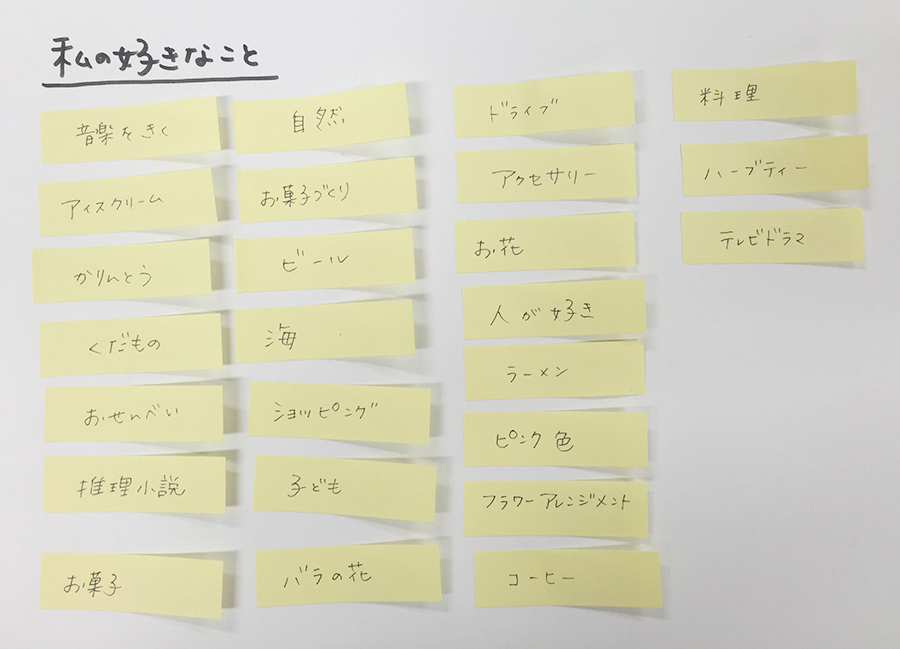 私の好きなこと
音楽をきく
アイスクリーム
かりんとう
くだもの
おせんべい
推理小説
お菓子
自然
お菓子づくり
ビール
海
ショッピング
子ども
バラの花
ドライブ
アクセサリー
お花
人が好き
ラーメン
ピンク色
フラワーアレンジメント
コーヒー
料理
ハーブティー
テレビドラマ